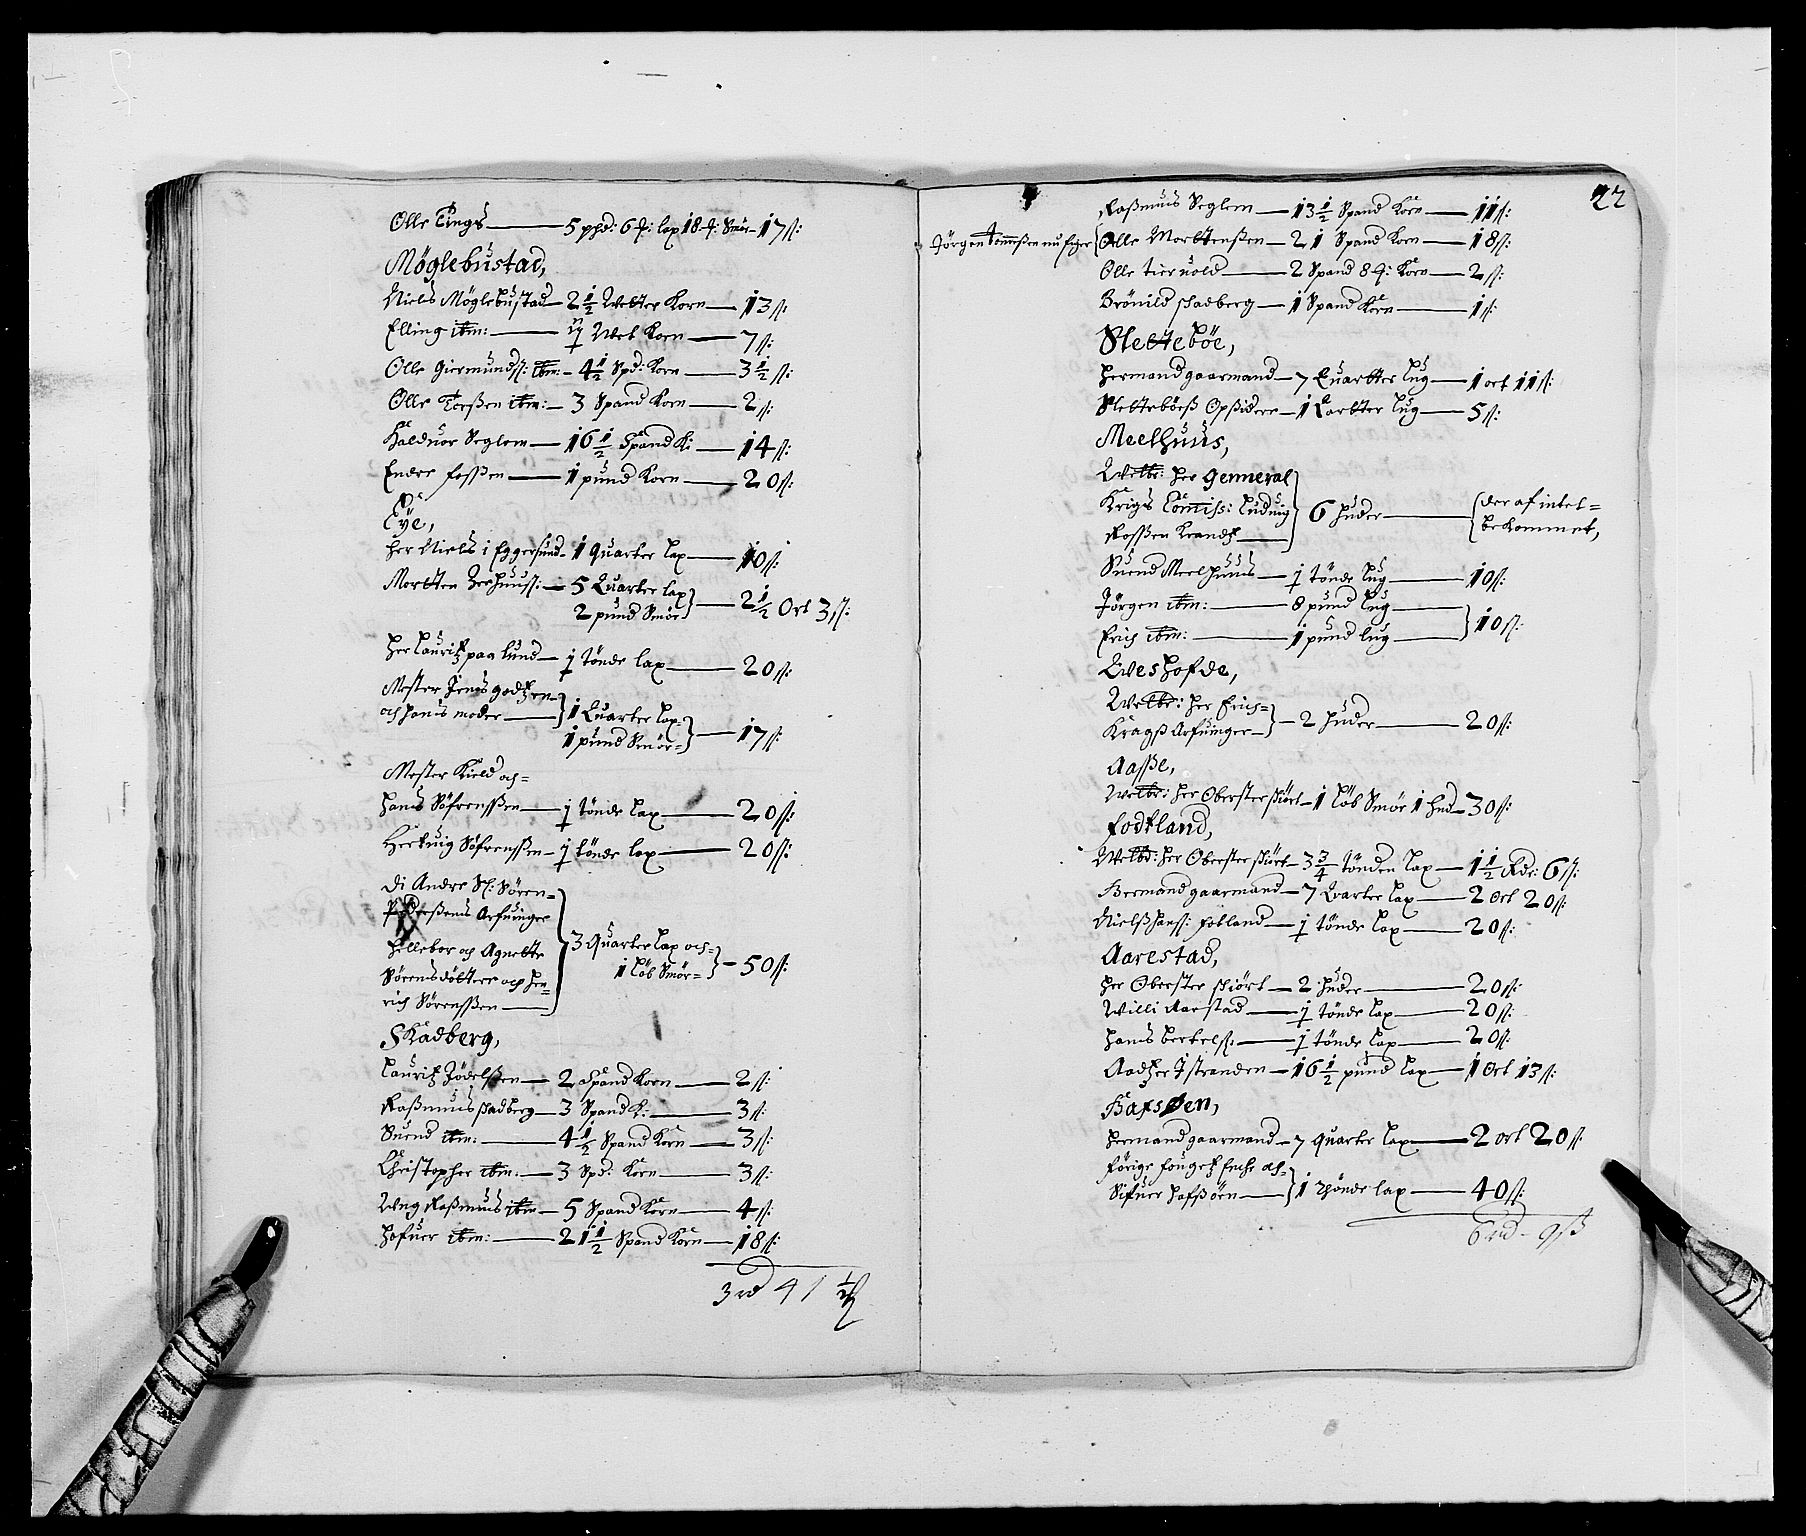 Olle Tengs — 5 phd: 6 ƒ: lax 18 ƒ: Smör — 17 ß:
Möglebustad,
Niels Möglebustad — 2 1/2 Wetter Korn — 13 ß:
Elling ibm: — 1/2 Wet Korn — 7 ß:
Olle Giermundß: ibm: — 4 1/2 Spd: Korn — 3 1/2 ß:
Olle Torßen ibm: — 3 Spand Korn — 2 ß:
Haldvor Seglem — 16 1/2 Spand K: — 14 ß:
Endre foßen — 1 pund Korn — 20 ß:
Eÿe,
Her Niels i Eggersund — 1 Quarter lax — 10 ß:
Mortten Zeehuuß: — 5 Quarter lax
2 pund Smör — 2 1/2 Ort 3 ß:
Her Lauritz paa Lund — 1/2 tönde lax — 20 ß:
Mester Jens Godtzen
och hans moder — 1 Quarter lax
1 pund Smör — 17 ß:
Mester Kield och
Hans Söfrenßen — 1/2 tönde lax — 20 ß:
Hertuig Söfrenßen — 1/2 tönde lax — 20 ß:
Di Andre Sl: Sören
Pederßens Arfuinger
Hellebor och Agnette
Sörensdötter och Hen-
rich Sörenßen — 3 Quarter lax och
1 löb Smör — 50 ß:
Skadberg,
Lauritz Jödelßen — 2 Spand Korn — 2 ß:
Raßmus skadberg — 3 Spand K: — 3 ß:
Suend ibm: — 4 1/2 Spand Korn — 3 ß:
Christopher ibm: — 3 Spd: Korn — 3 ß:
Ung Raßmus ibm — 5 Spand Korn — 4 ß:
Hofuer ibm: — 21 1/2 Spand Korn — 18 ß:
3 rd 41 1/2 ß
22
Raßmus Seglem — 13 1/2 Spand Korn — 11 ß:
Jörgen Tommßen nu eyer Olle Morttenßen — 21 Spand Korn — 18 ß:
Olle tieruold — 2 Spand 8 ƒ: Korn — 2 ß:
Brönild skadberg — 1 Spand Korn — 1 ß:
Sletteböe,
Hermand gaarmand — 7 Quartter lug — 1 ort 11 ß:
Sletteböeß Opsidere — 1 Qartter lug — 5 ß:
Meelhuus,
Welbr: Her Genneral
Krigs Comiss: Ludvig
Roßen Krandtz — 6 huder — der af intet=
bekommet,
Suend Meelhuus — 1/2 tönde lug — 10 ß:
Jörgen ibm: — 8 pund lug
Erich ibm: — 1 pund lug — 10 ß:
Weshofde,
Welbr: Her Erich
Kragß Arfuinger — 2 huder — 20 ß:
Aaße,
Welbr: Her Oberster skiört — 1 löb Smör 1 hud — 30 ß:
Fodtland,
Welbr: Her Oberster skiört — 3 3/4 tönden lax — 1 1/2 Rdr: 6 ß:
Hermand gaarmand — 7 Qvarter lax — 2 Ort 20 ß:
Nielß hanß: fotland — 1/2 tönde lax — 20 ß:
Aarestad,
Her Oberster skiört — 2 huder — 20 ß:
Willi Aarstad — 1/2 tönde lax — 20 ß:
Hans bertelß: — 1/2 tönde lax — 20 ß:
Aadtzer Jstranden — 16 1/2 pund lax — 1 Ort 13 ß:
Hafsøen,
Hermand gaarmand — 7 Quarter lax — 2 ort 20 ß:
förige fougetz Encke och
Sifuer hafßörn — 1 thönde lax — 40 ß:
6 rd – 9 ß